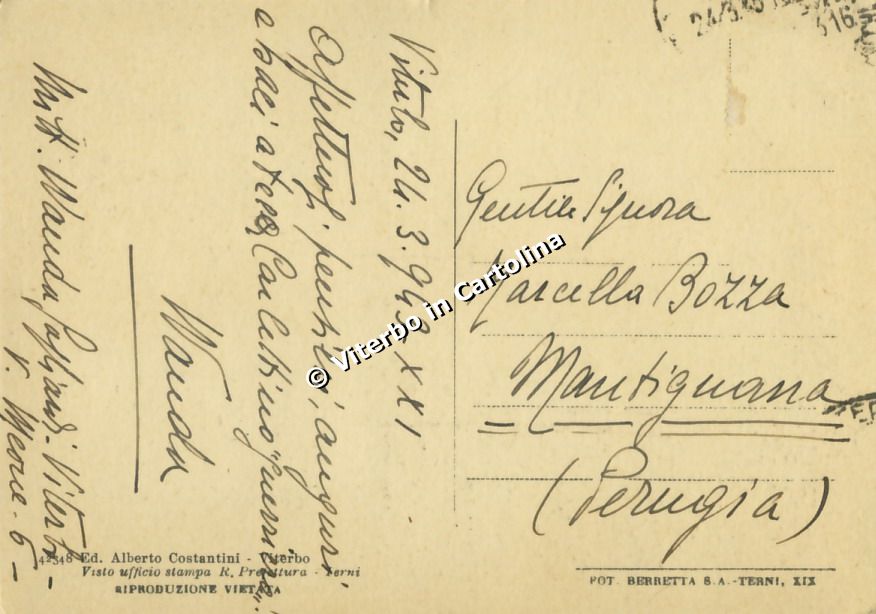 Viterbo, 24.3.943 XXI
Affettuosi pensieri, auguri
e baci a te e Carlettino
Wanda
Mitt. Wanda Viterbo
V. 6
Gentile Signora
Marcella Bozza
Mantignana
(Perugia)
24/3.43
316
© Viterbo in Cartolina
42348 Ed. Alberto Costantini - Viterbo
Visto ufficio stampa R. Prefettura - Terni
RIPRODUZIONE VIETATA
FOT. BERRETTA S.A.-TERNI, XIX